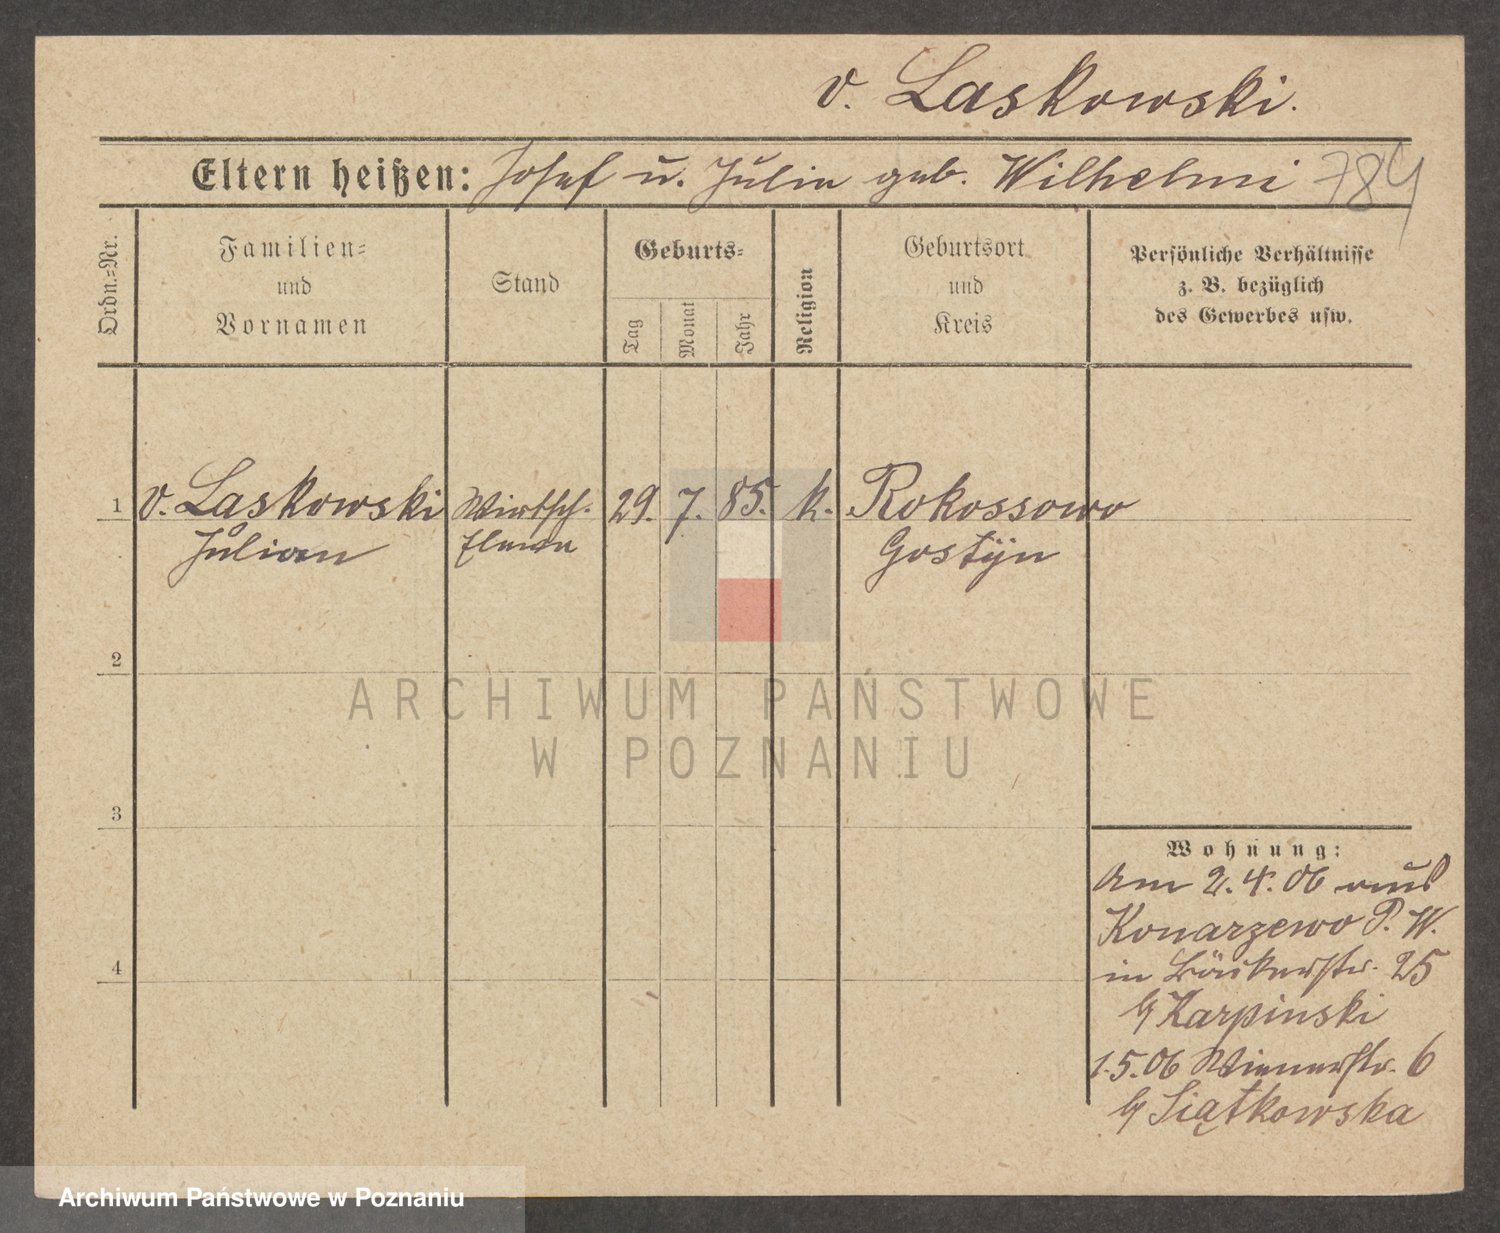 v. Laskowski.
Eltern heißen: Josef u. Julie geb. Wilhelmi 784
Ordn.-Nr.
Familien-
und
Vornamen
Stand
Geburts-
Tag
Monat
Jahr
Religion
Geburtsort
und
Kreis
Persönliche Verhältnisse
z. B. bezüglich
des Gewerbes usw.
1 v. Laskowski Wirtsch. 29. 7. 85. k. Rokossowo
Julian Eleve Gostÿn
2
3
4
ARCHIWUM PAŃSTWOWE
W POZNANIU
Wohnung:
Am 2.4.06 aus
Konarzewo P. W.
in Bäckerstr. 25
b/ Karpinski
1.5.06 Wienerstr. 6
b/ Siątkowska
Archiwum Państwowe w Poznaniu